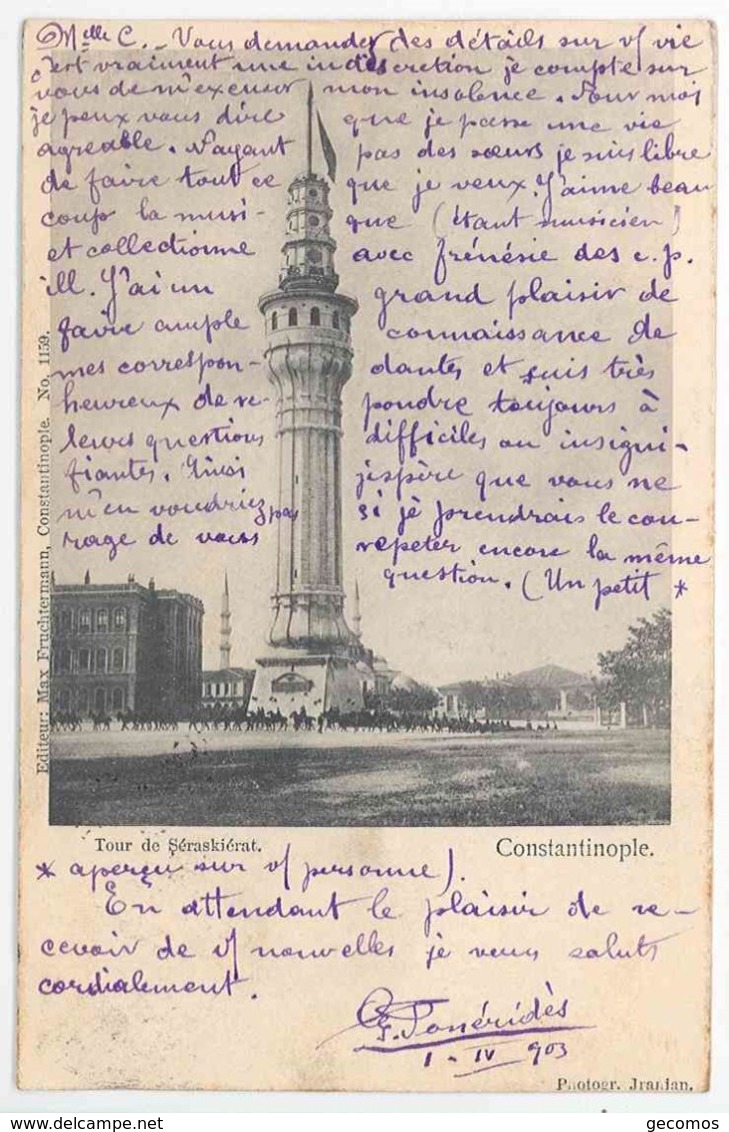 Mlle C. - Vous demandez des détails sur v/ vie
c'est vraiment une indiscretion je compte sur
vous de m'excuser mon insolence. Pour moi
je peux vous dire que je passe une vie
agreable. N'ayant pas des sœurs je suis libre
de faire tout ce que je veux. J'aime beau
coup la musi- que (étant musicien)
et collectionne avec frénésie des c.p.
ill. J'ai un grand plaisir de
faire ample connaissance de
mes correspon- dantes et suis très
heureux de re- pondre toujours à
leurs questions difficiles ou insigni-
fiantes. Ainsi j'espère que vous ne
m'en voudriez pas si je prendrais le cou-
rage de vous repeter encore la même
question. (Un petit *
Editeur: Max Fruchtermann, Constantinople. No. 1159.
Tour de Séraskiérat. Constantinople.
* aperçu sur v/ personne).
En attendant le plaisir de re-
cevoir de v/ nouvelles je vous saluts
cordialement.
1 - IV 903
Photogr. Iranian.
gecomos